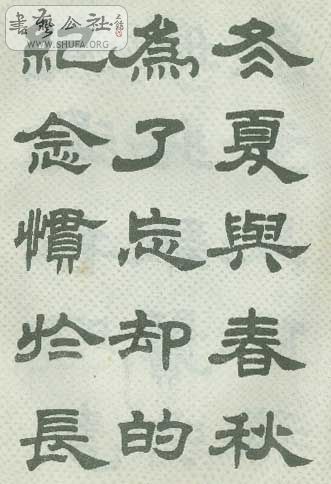 書藝公社
WWW.SHUFA.ORG
冬夏與春秋
為了忘却的
紀念慣於長